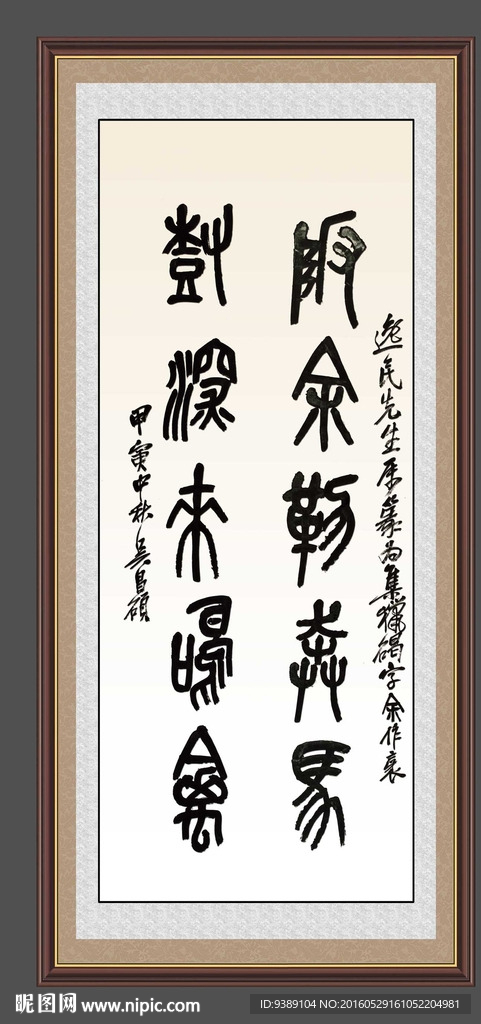 逸民先生屬篆為集獵碣字余作
余勒奔馬
樹深來鳴禽
甲寅中秋吳昌碩
昵图网 www.nipic.com
ID:9389104 NO:20160529161052204981